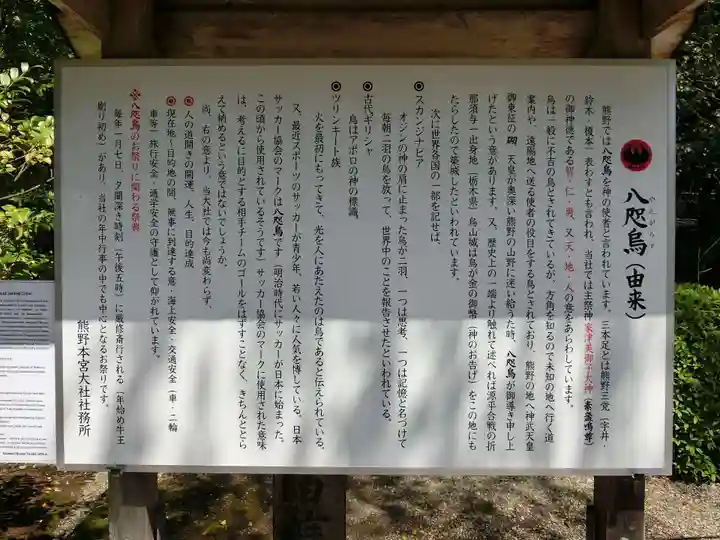 八咫烏（由来）
やたがらす
熊野では八咫烏を神の使者と言われています。三本足とは熊野三党（宇井・
鈴木・榎本）表わすとも言われ、当社では主祭神家津美御子大神（素盞鳴尊）
の御神徳である智・仁・勇、又天・地・人の意をあらわしています。
烏は一般に不吉の鳥とされてきているが、方角を知るので未知の地へ行く道
案内や、遠隔地へ送る使者の役目をする鳥とされており、熊野の地へ神武天皇
御東征の砌、天皇が奥深い熊野の山野に迷い給うた時、八咫烏が御導き申し上
げたという意があります。又、歴史上の一端より触れて述べれば源平合戦の折
那須与一出身地（栃木県）烏山城は烏が金の御幣（神のお告げ）をこの地にも
たらしたので築城したといわれています。
次に世界各国の一部を記せば、
スカンジナビア
オジンの神の肩に止まった烏が二羽、一つは思考、一つは記憶と名づけて
毎朝二羽の烏を放って、世界中のことを報告させたといわれている。
古代ギリシャ
烏はアポロの神の標識。
ツリンキート族
火を最初にもってきて、光を人にあたえたのは烏であると伝えられている。
又、最近スポーツのサッカーが青少年、若い人々に人気を博している。日本
サッカー協会のマークは八咫烏です（明治時代にサッカーが日本に始まった。
この頃から使用されているそうです）サッカー協会のマークに使用された意味
は、考えるに目的とする相手チームのゴールをはずすことなく、きちんととら
えて納めるという意ではないでしょうか。
尚、右の意より、当大社では今も尚変わらず、
人の道開きの開運、人生、目的達成
現在地〜目的地の間、無事に到達する意・海上安全・交通安全（車・二輪
車等）旅行安全・通学安全の守護として仰がれています。
八咫烏のお祭りに関わる祭典
毎年一月七日、夕闇深き時刻（午後五時）に厳修斎行される（年始め牛王
刷り初め）があり、当社の年中行事の中でも中心となるお祭りです。
熊野本宮大社社務所